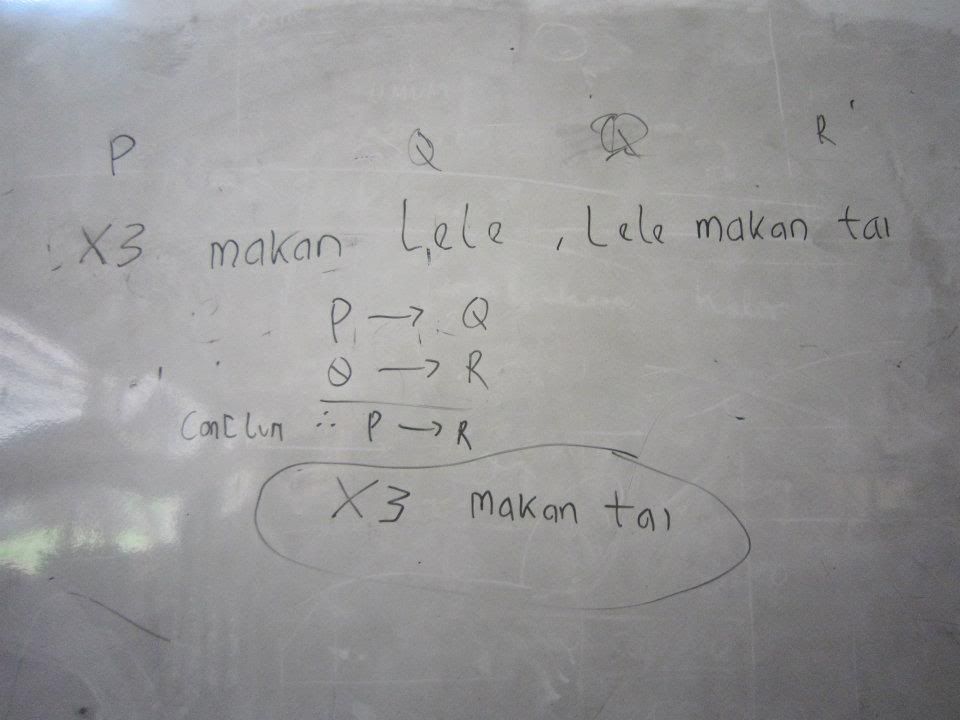 P Q R
X3 makan Lele , Lele makan tai
P → Q
Q → R
∴ P → R
X3 makan tai